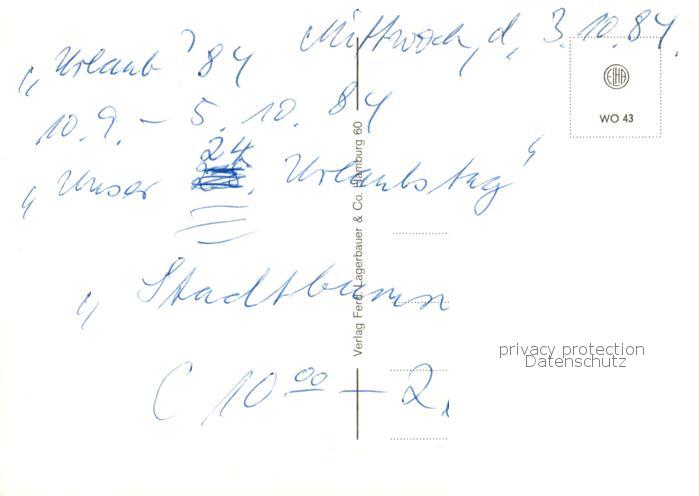 Mittwoch, d, 3.10.84.
„Urlaub '84
10.9. – 5.10.84
24
„Unser . Urlaubstag“
„Stadtbumm
( 10 00 – 2.
EHA
WO 43
Verlag Ferd. Lagerbauer & Co. Hamburg 60
privacy protection
Datenschutz